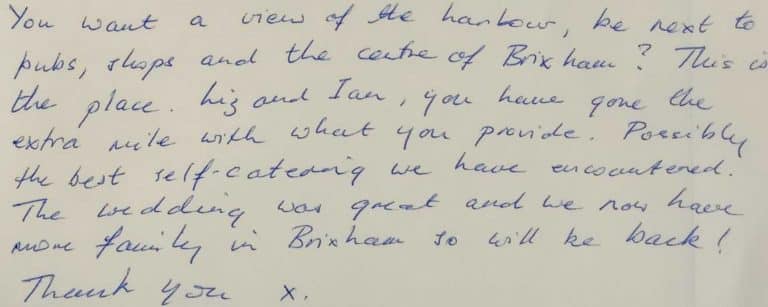 You want a view of the harbour, be next to
pubs, shops and the centre of Brixham? This is
the place. Liz and Ian, you have gone the
extra mile with what you provide. Possibly
the best self-catering we have encountered.
The wedding was great and we now have
more family in Brixham so will be back!
Thank you x.